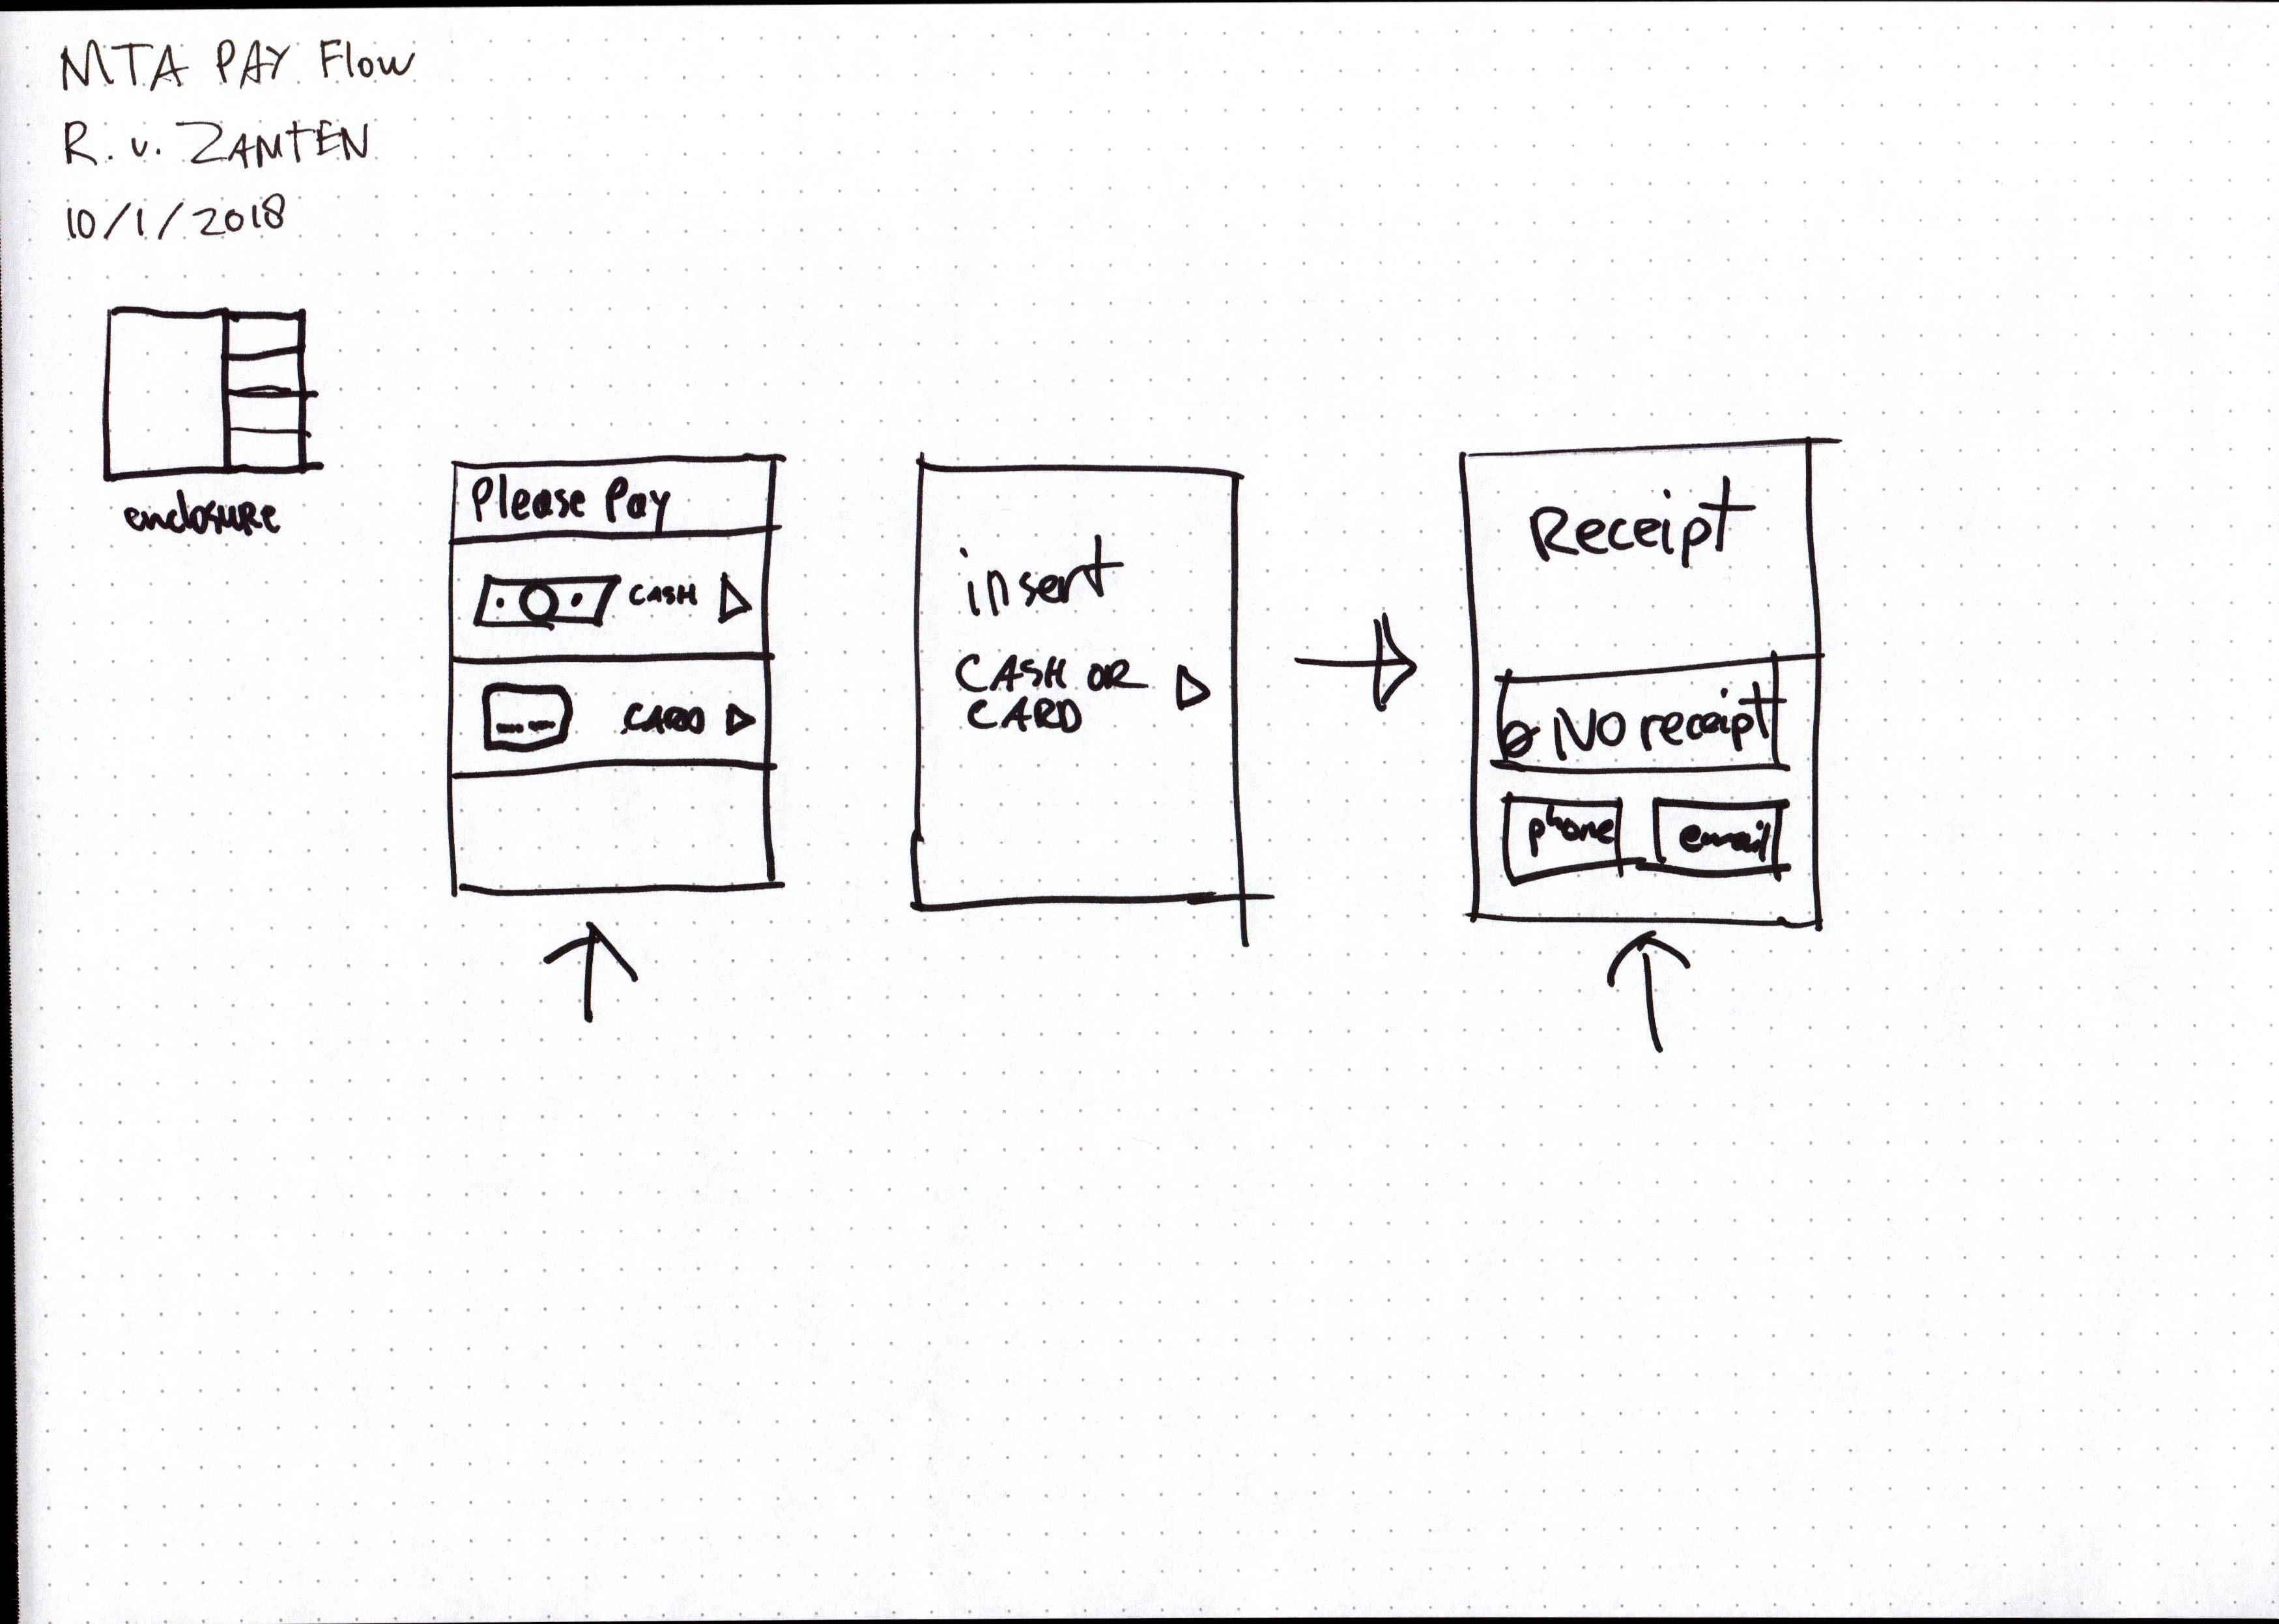 MTA PAY Flow
R. v. ZANTEN
10/1/2018
enclosure
Please Pay
CASH
CARD
insert
CASH OR
CARD
Receipt
NO receipt
phone
email